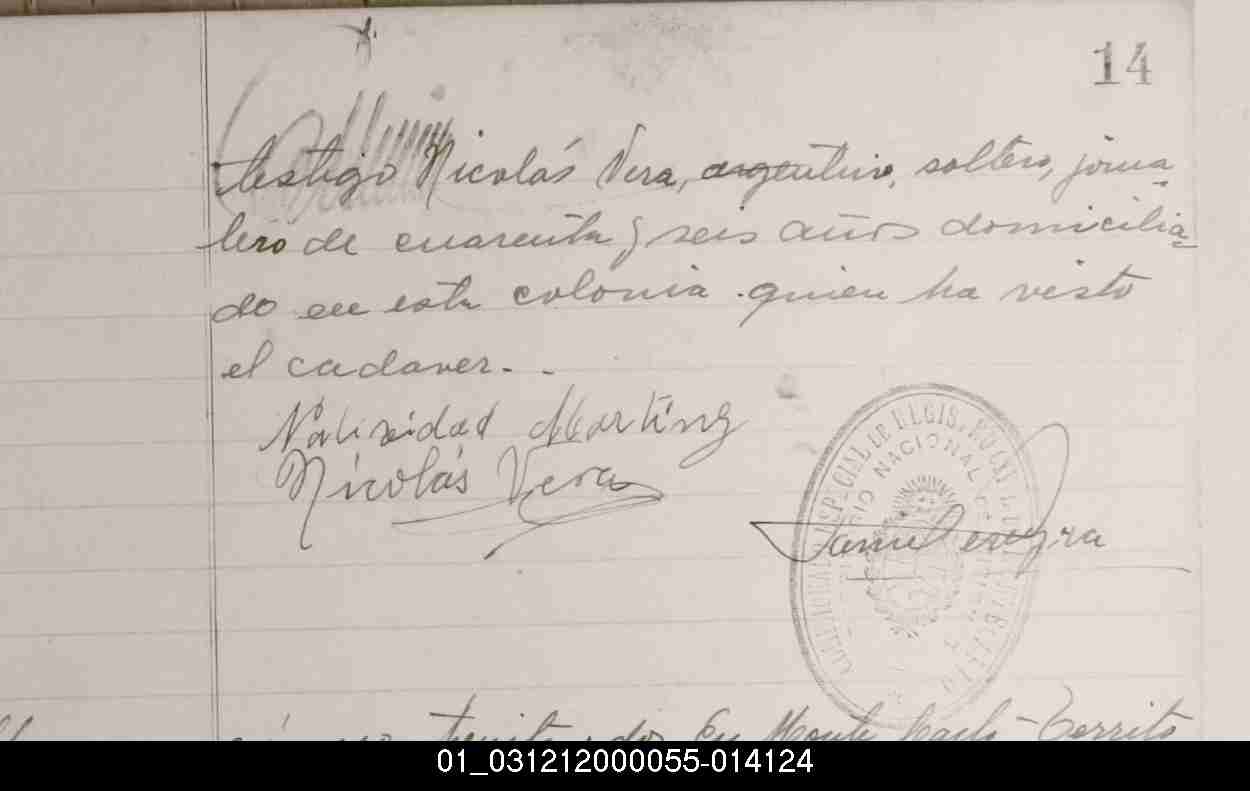 14
testigo Nicolás Vera, argentino, soltero, jorna-
lero de cuarenta y seis años domicilia-
do en esta colonia quien ha visto
el cadaver. -
Natividad Martinz
Nicolás Vera
NACIONAL
treinta y dos En Monte Carlo - Territo
01_031212000055-014124